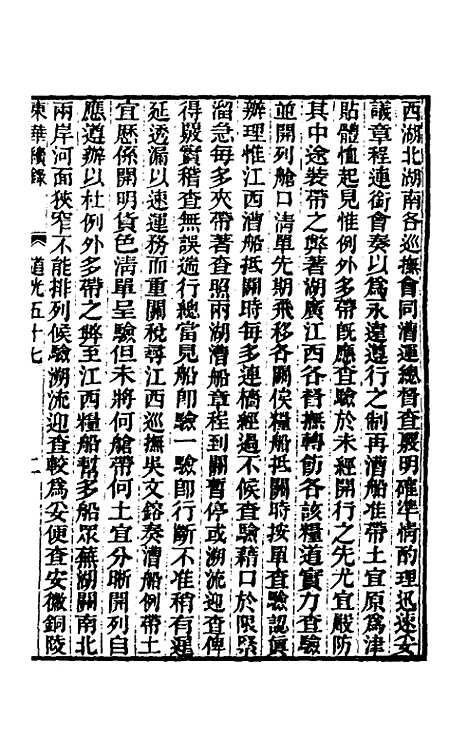 西湖北湖南各巡撫會同漕運總督查嚴明確準情酌理迅速妥
議章程連銜會奏以爲永遠遵行之制再漕船准帶土宜原爲津
貼體恤起見惟例外多帶旣應查驗於未經開行之先尤宜嚴防
其中途裝帶之弊著湖廣江西各督撫轉飭各該糧道實力查驗
並開列艙口淸單先期飛移各關俟糧船抵關時按單查驗認眞
辦理惟江西漕船抵關時每多連檣經過不候查驗藉口於限緊
溜急每多夾帶著查照兩湖漕船章程到關暫停或溯流迎查俾
得嚴實稽查無誤遄行總當見船卽驗一驗卽行斷不准稍有遲
延透漏以速運務而重關稅尋江西巡撫吳文鎔奏漕船例帶土
宜歷係開明貨色淸單呈驗但未將何艙帶何土宜分晰開列自
應遵辦以杜例外多帶之弊至江西糧船幫多船眾蕪湖關南北
兩岸河面狹窄不能排列候驗溯流迎查較爲妥便查安徽銅陵
東華續錄 道光五十七 二